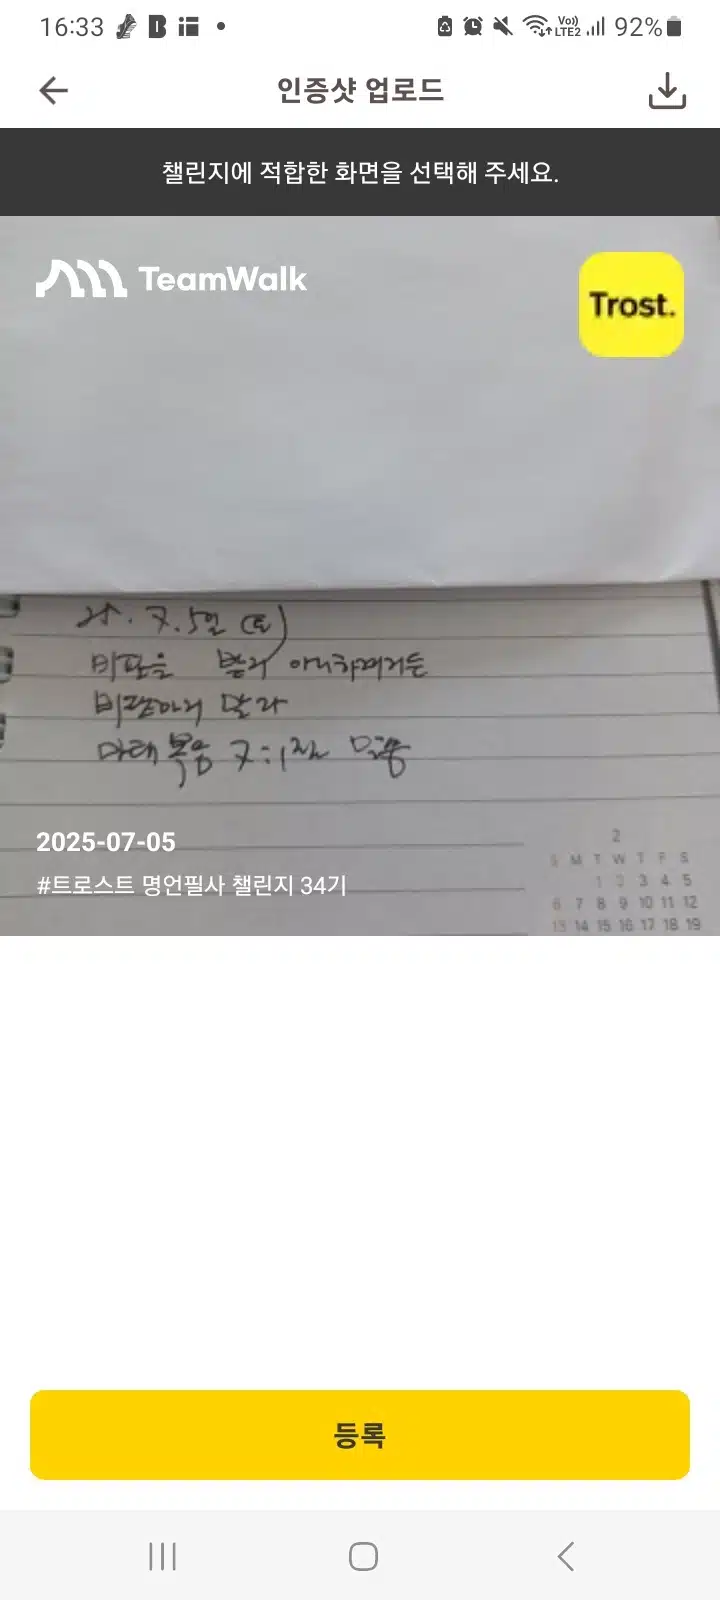 16:33
Vo)) LTE2 92%
인증샷 업로드
챌린지에 적합한 화면을 선택해 주세요.
TeamWalk
Trost.
25. 7.5일 (토)
비판을 받지 아니하려거든
비판하지 말라
마태복음 7:1절 말씀
2025-07-05
#트로스트 명언필사 챌린지 34기
2
S M T W T F S
1 2 3 4 5
6 7 8 9 10 11 12
13 14 15 16 17 18 19
등록